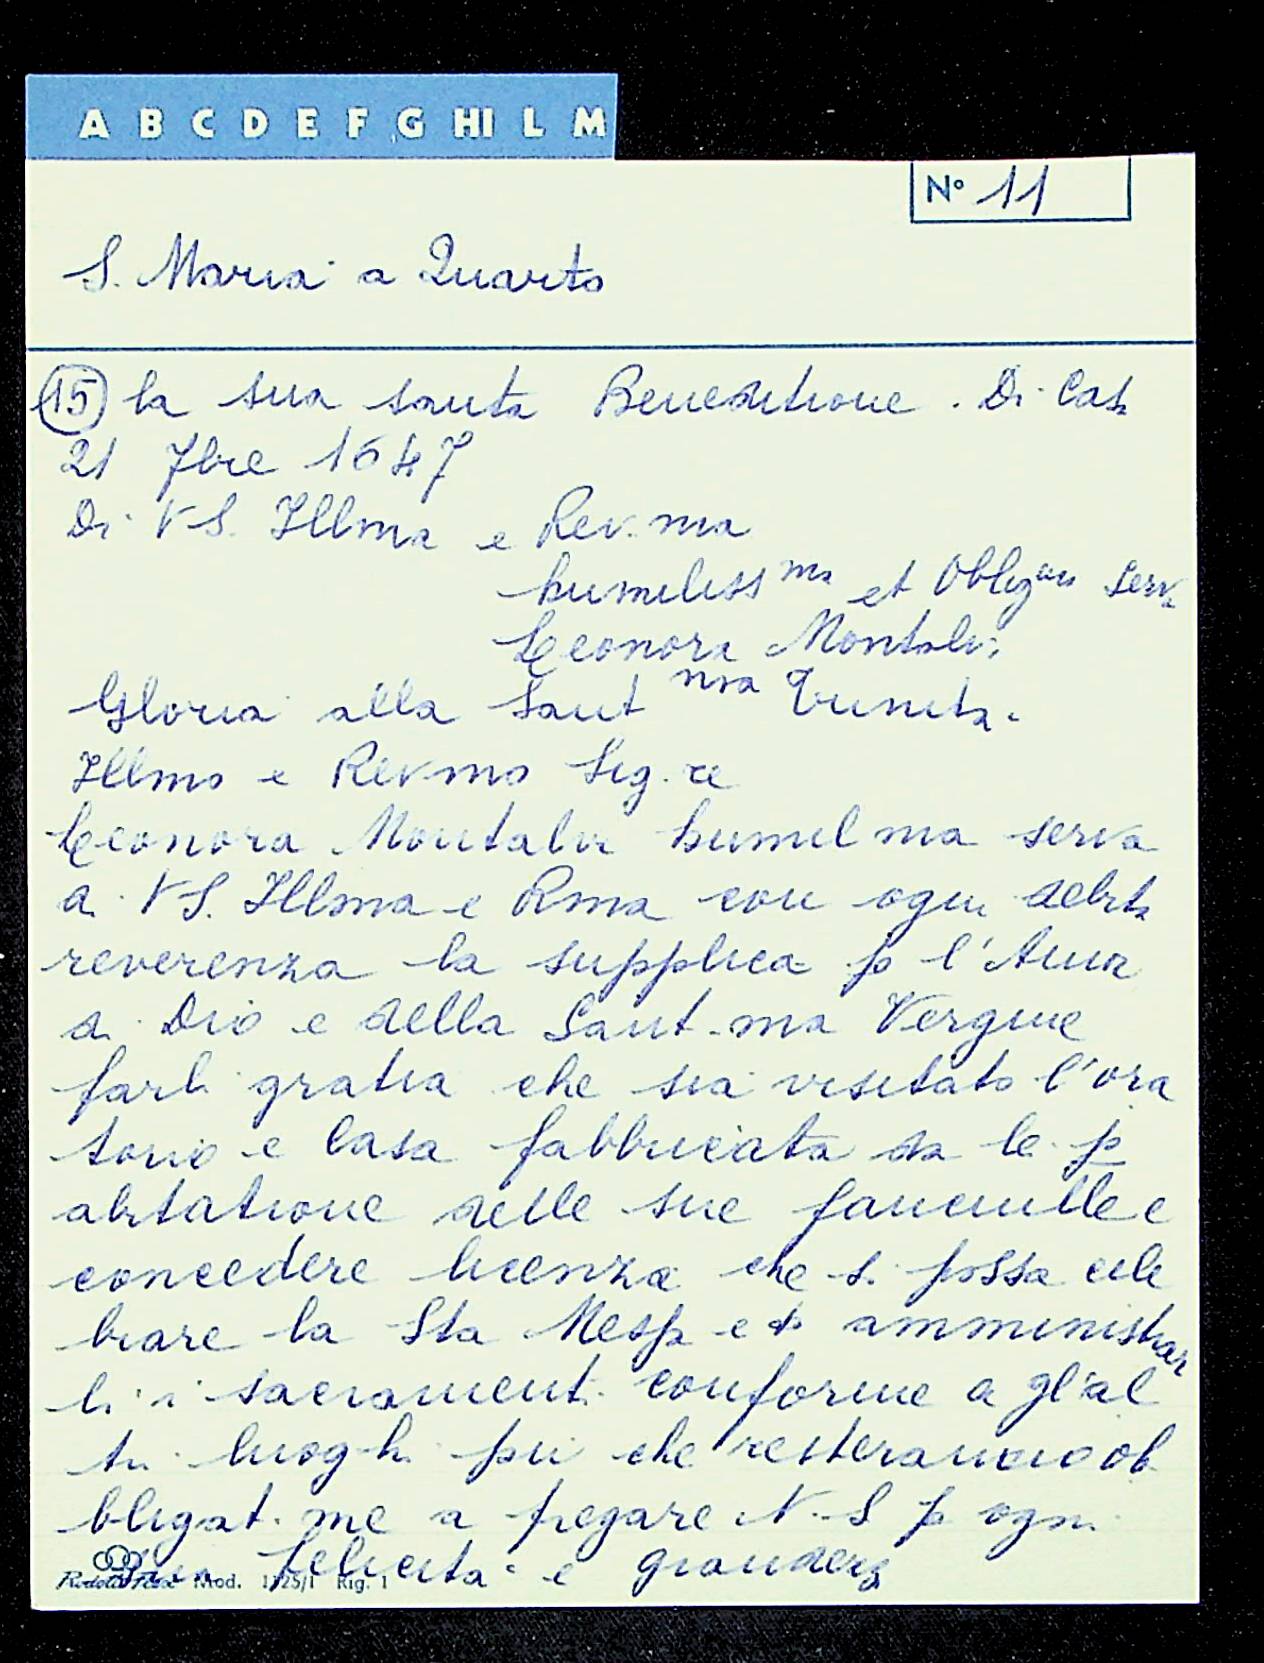 A B C D E F G HI L M
N° 11
S. Maria a Quarto
(15) la sua santa Beneditione. Di Casa
21 7bre 1647
Di VS. Illma e Rev.ma
humiliss ma et Oblig Serva
Leonora Montalvi
Gloria alla Sant ma Trinità.
Illmo e Revmo Sig.re
Leonora Montalvi humil ma serva
di VS. Illma e Rma con ogni debita
reverenza la supplica p l'Amor
di Dio e della Sant.ma Vergine
farli gratia che sia visitato l'ora
torio e Casa fabbricata da lei p
abitatione delle sue fanciulle e
concedere licenza che si possa cele
brare la Sta Messa et amministrar
li i sacramenti conforme a gl'al
tri luoghi pii che resteranno ob
bligat.me a pregare N.S p ogni
sua felicità e grandezza
Mod. 1725/1 Rig. 1